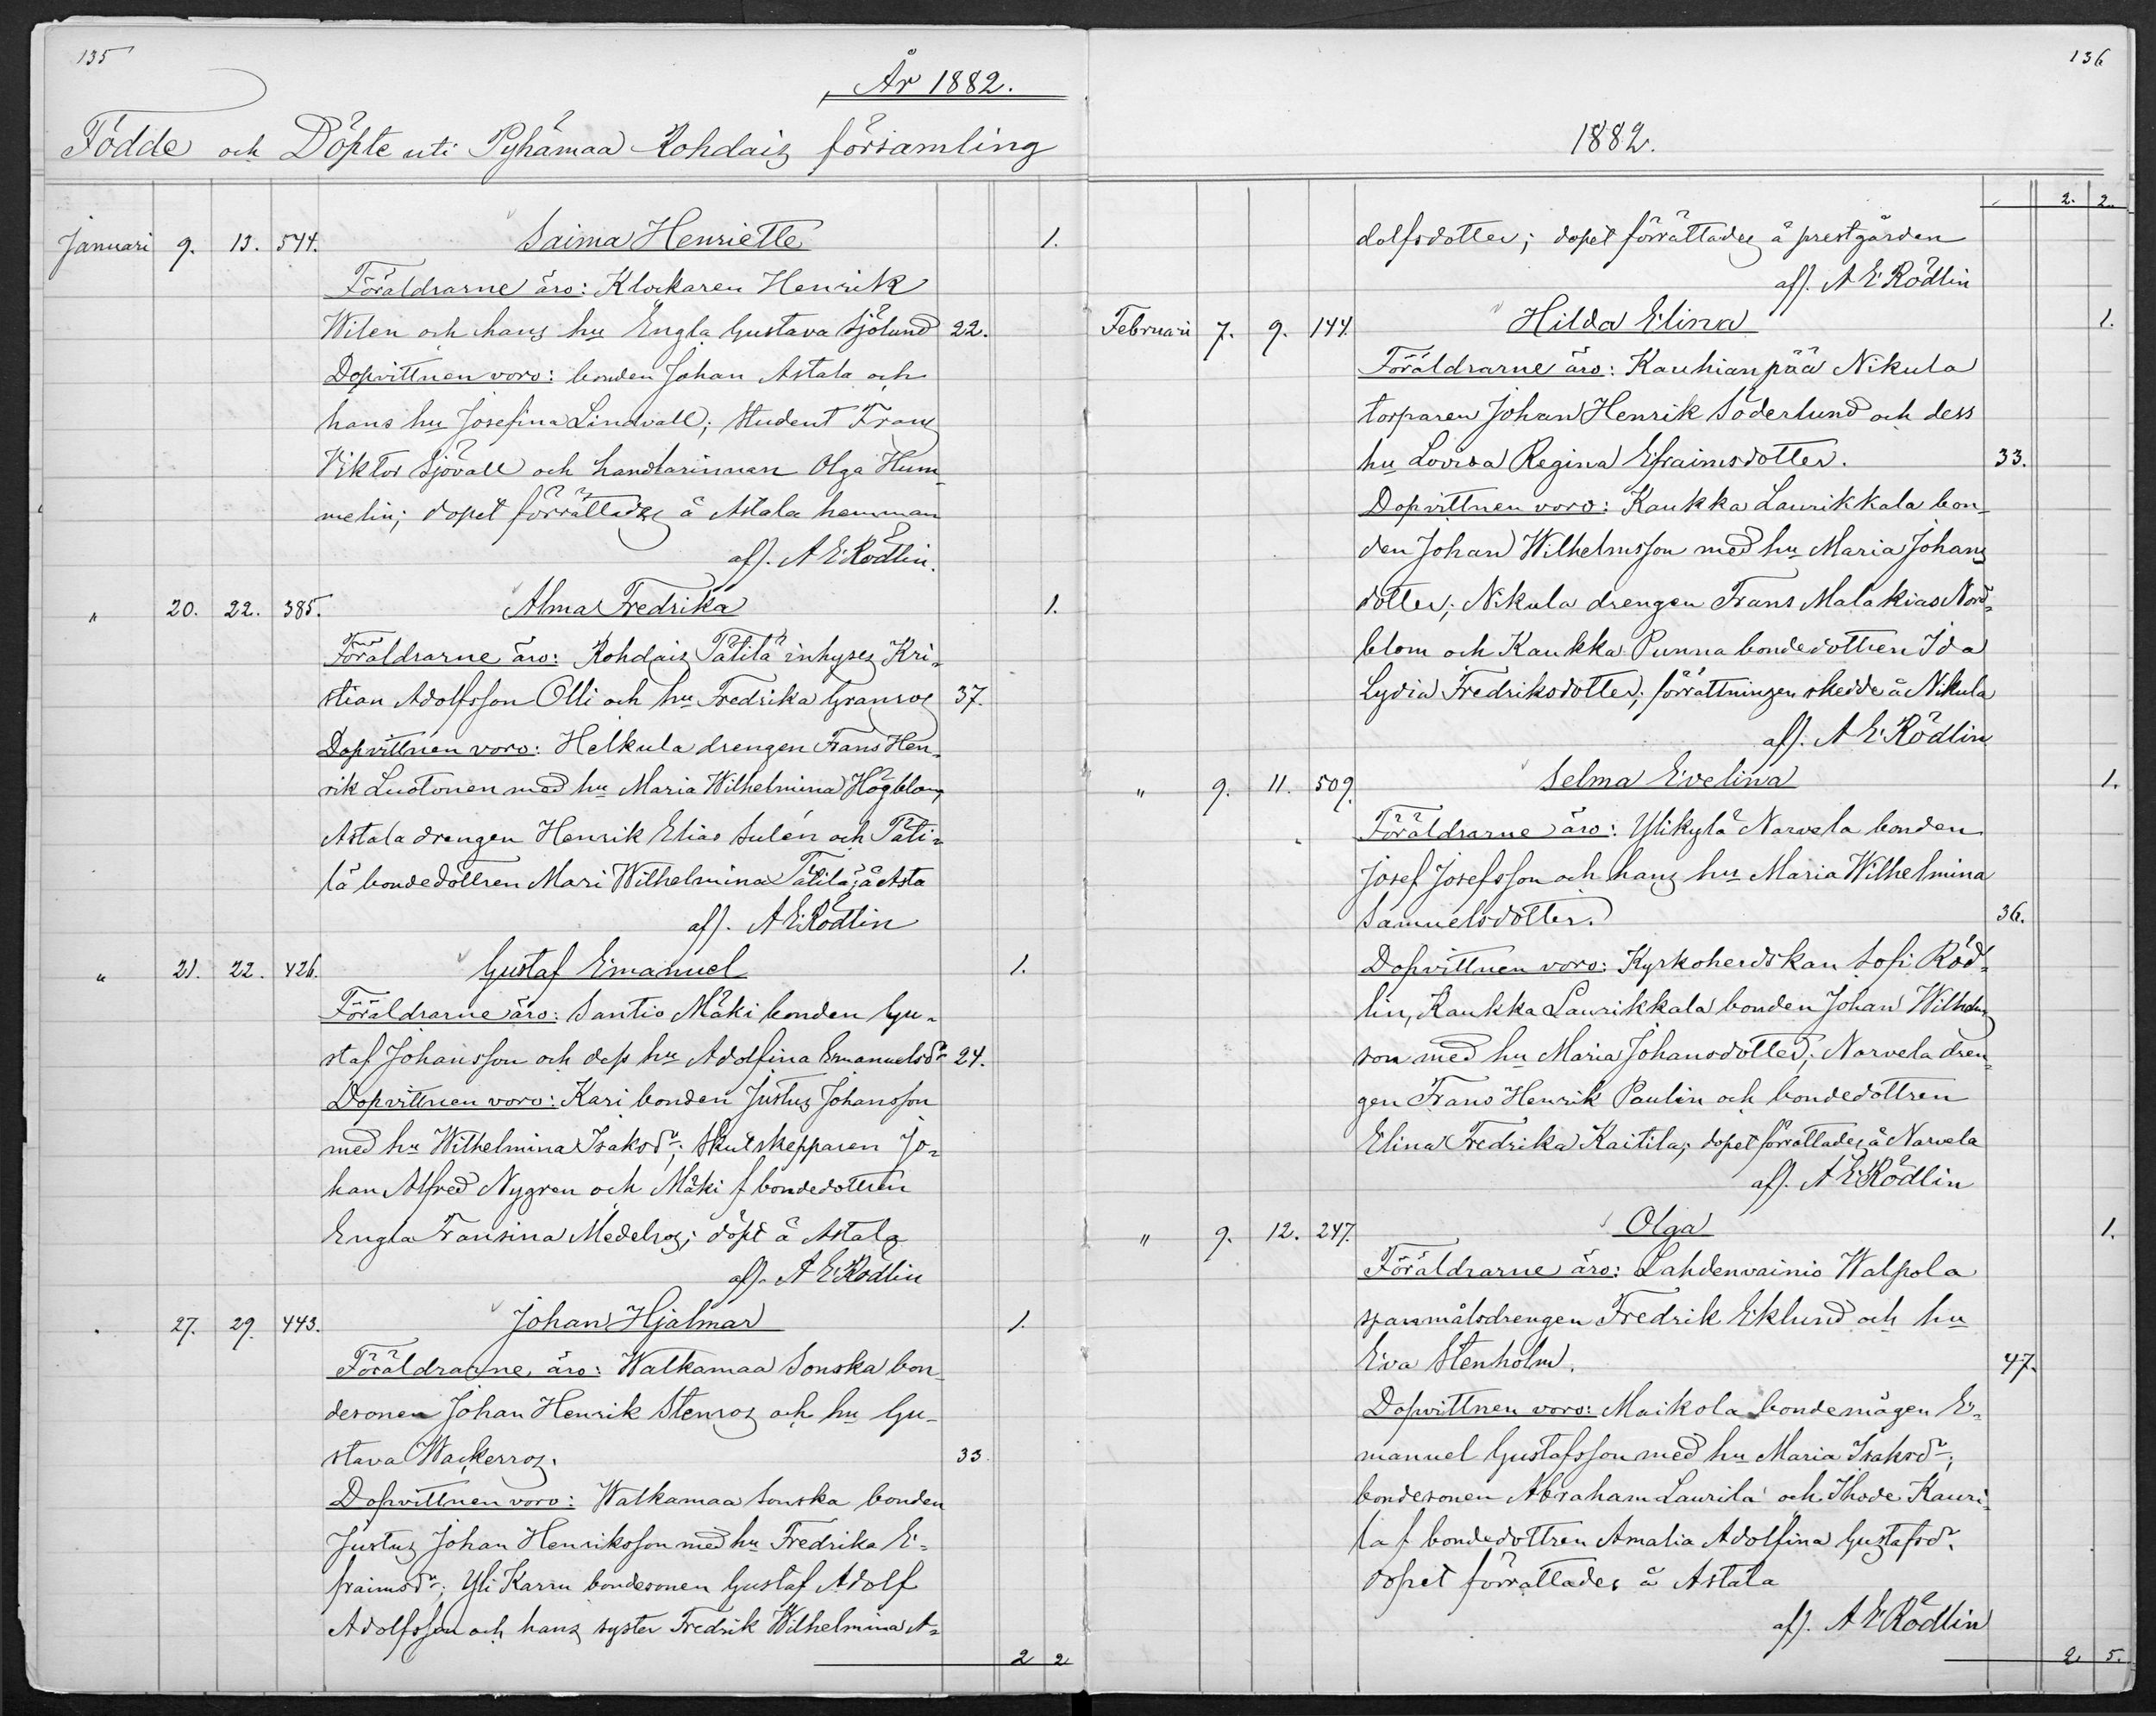 135
År 1882.
Födde och Döpte uti Pyhämaa Rohdais församling
Januari 9. 13. 544. Saima Henriette 1.
Föräldrarne äro: Klockaren Henrik
Wilen och hans hu Engla Gustava Sjölund 22.
Dopvittnen voro: bonden Johan Astala och
hans hu Josefina Lindvall; Student Frans
Viktor Sjövall och handlarinnan Olga Hum-
melin; dopet förrättades å Astala hemman
aff. A E Rödlin.
" 20. 22. 385. Alma Fredrika 1.
Föräldrarne äro: Rohdais Pätilä inhyses Kri-
stian Adolfsson Olli och hu Fredrika Granros 37.
Dopvittnen voro: Helkula drengen Frans Hen-
rik Luotonen med hu Maria Wilhelmina Högblom,
Astala drengen Henrik Elias Sulén och Päti-
lä bondedottren Mari Wilhelmina Pätilä; å Asta
aff. A E Rödlin
" 21. 22. 426. Gustaf Emanuel 1.
Föräldrarne äro: Santio Mäki bonden Gu-
staf Johansson och dess hu Adolfina Emanuelsdr 24.
Dopvittnen voro: Kari bonden Justus Johansson
med hu Wilhelmina Isaksdr; Skutskepparen Jo-
han Alfred Nygren och Mäki f bondedottren
Engla Fransina Medelros; döpt å Astala
aff. A E Rödlin
" 27. 29. 443. Johan Hjalmar 1.
Föräldrarne äro: Walkamaa Sonska bon-
desonen Johan Henrik Stenros och hu Gu-
stava Wackerros. 33.
Dopvittnen voro: Walkamaa Sonska bonden
Justus Johan Henriksson med hu Fredrika E-
fraimsdr; Yli Karru bondesonen Gustaf Adolf
Adolfsson och hans syster Fredrik Wilhelmina A-
2 2
136
1882.
2. 2.
dolfsdotter; dopet förrättades å prestgården
aff. A E Rödlin
Februari 7. 9. 144. Hilda Elina 1.
Föräldrarne äro: Kauhianpää Nikula
torparen Johan Henrik Söderlund och dess
hu Lovisa Regina Efraimsdotter. 33.
Dopvittnen voro: Kaukka Laurikkala bon-
den Johan Wilhelmsson med hu Maria Johans
dotter; Nikula drengen Frans Malakias Nord-
blom och Kaukka Punna bondedottren Ida
Lydia Fredriksdotter; förrättningen skedde å Nikula
aff. A E Rödlin
" 9. 11. 509. Selma Evelina 1.
Föräldrarne äro: Ylikylä Narvela bonden
Josef Josefsson och hans hu Maria Wilhelmina
Samuelsdotter. 36.
Dopvittnen voro: Kyrkoherdskan Sofi Röd-
lin, Kaukka Laurikkala bonden Johan Wilhelms
son med hu Maria Johansdotter; Narvela dren-
gen Frans Henrik Paulin och bondedottren
Elina Fredrika Kaitila; dopet förrättades å Narvela
aff. A E Rödlin
" 9. 12. 247. Olga 1.
Föräldrarne äro: Lahdenvainio Walpola
spanmålsdrengen Fredrik Eklund och hu
Eva Stenholm. 47.
Dopvittnen voro: Maikola bondemågen E-
manuel Gustafsson med hu Maria Isaksdr;
bondesonen Abraham Laurila och Ihode Kauri-
la f bondedottren Amalia Adolfina Gustafsdr.
dopet förrättades å Astala
aff. A E Rödlin
2. 5.